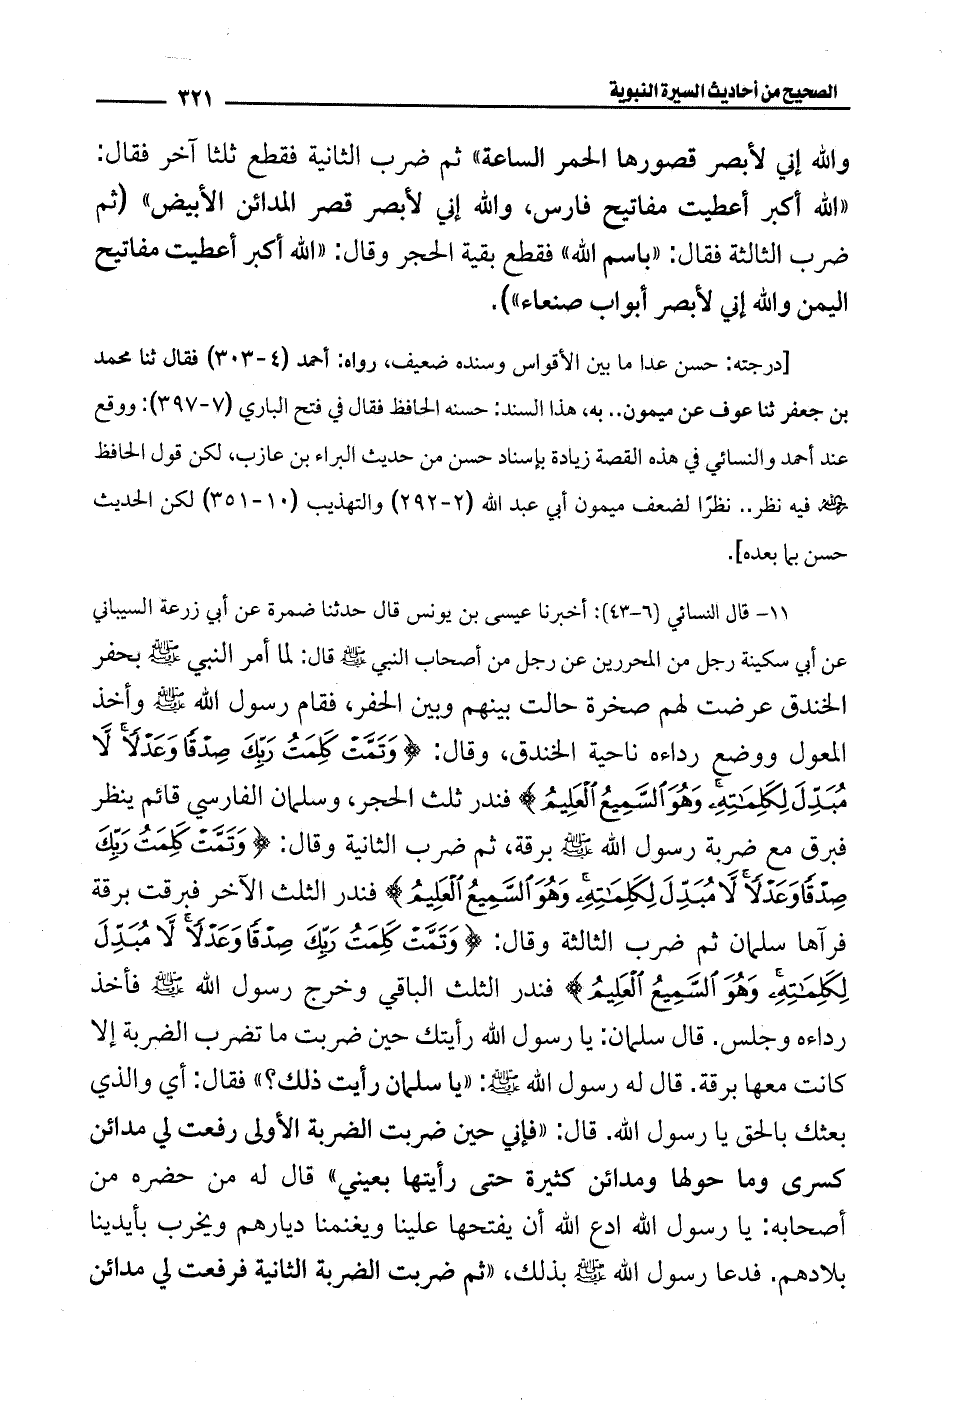 الصحيح من أحاديث السيرة النبوية ٣٢١
والله إني لأبصر قصورها الحمر الساعة» ثم ضرب الثانية فقطع ثلثا آخر فقال:
«الله أكبر أعطيت مفاتيح فارس، والله إني لأبصر قصر المدائن الأبيض» (ثم
ضرب الثالثة فقال: «باسم الله» فقطع بقية الحجر وقال: «الله أكبر أعطيت مفاتيح
اليمن والله إني لأبصر أبواب صنعاء»).
[درجته: حسن عدا ما بين الأقواس وسنده ضعيف، رواه: أحمد (٤-٣٠٣) فقال ثنا محمد
بن جعفر ثنا عوف عن ميمون.. به، هذا السند: حسنه الحافظ فقال في فتح الباري (٧-٣٩٧): ووقع
عند أحمد والنسائي في هذه القصة زيادة بإسناد حسن من حديث البراء بن عازب، لكن قول الحافظ
رحمه الله فيه نظر.. نظرًا لضعف ميمون أبي عبد الله (٢-٢٩٢) والتهذيب (١٠-٣٥١) لكن الحديث
حسن بما بعده].
١١- قال النسائي (٦-٤٣): أخبرنا عيسى بن يونس قال حدثنا ضمرة عن أبي زرعة السيباني
عن أبي سكينة رجل من المحررين عن رجل من أصحاب النبي ﷺ قال: لما أمر النبي ﷺ بحفر
الخندق عرضت لهم صخرة حالت بينهم وبين الحفر، فقام رسول الله ﷺ وأخذ
المعول ووضع رداءه ناحية الخندق، وقال: ﴿ وَتَمَّتۡ كَلِمَتُ رَبِّكَ صِدۡقٗا وَعَدۡلٗاۚ لَّا
مُبَدِّلَ لِكَلِمَٰتِهِۦۚ وَهُوَ ٱلسَّمِيعُ ٱلۡعَلِيمُ ﴾ فندر ثلث الحجر، وسلمان الفارسي قائم ينظر
فبرق مع ضربة رسول الله ﷺ برقة، ثم ضرب الثانية وقال: ﴿ وَتَمَّتۡ كَلِمَتُ رَبِّكَ
صِدۡقٗا وَعَدۡلٗاۚ لَّا مُبَدِّلَ لِكَلِمَٰتِهِۦۚ وَهُوَ ٱلسَّمِيعُ ٱلۡعَلِيمُ ﴾ فندر الثلث الآخر فبرقت برقة
فرآها سلمان ثم ضرب الثالثة وقال: ﴿ وَتَمَّتۡ كَلِمَتُ رَبِّكَ صِدۡقٗا وَعَدۡلٗاۚ لَّا مُبَدِّلَ
لِكَلِمَٰتِهِۦۚ وَهُوَ ٱلسَّمِيعُ ٱلۡعَلِيمُ ﴾ فندر الثلث الباقي وخرج رسول الله ﷺ فأخذ
رداءه وجلس. قال سلمان: يا رسول الله رأيتك حين ضربت ما تضرب الضربة إلا
كانت معها برقة. قال له رسول الله ﷺ: «يا سلمان رأيت ذلك؟» فقال: أي والذي
بعثك بالحق يا رسول الله. قال: «فإني حين ضربت الضربة الأولى رفعت لي مدائن
كسرى وما حولها ومدائن كثيرة حتى رأيتها بعيني» قال له من حضره من
أصحابه: يا رسول الله ادع الله أن يفتحها علينا ويغنمنا ديارهم ويخرب بأيدينا
بلادهم. فدعا رسول الله ﷺ بذلك، «ثم ضربت الضربة الثانية فرفعت لي مدائن